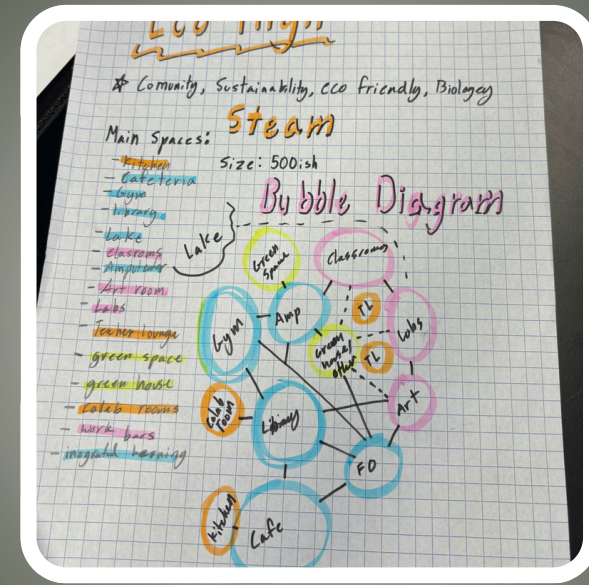 Eco High
☆ Comunity, Sustainability, eco friendly, Biology
Steam
Main Spaces:
Size: 500ish
- Kitchen
- Cafeteria
- Gym
- library
- Lake
- classroms
- Art room
- Labs
- Teacher lounge
- green space
- green house
- Colab rooms
- work bars
Bubble Diagram
Lake
Green Space
Classrooms
Gym
Amp
TL
Labs
Green house/ other
TL
Colab room
Library
Art
FO
Kitchen
Cafe